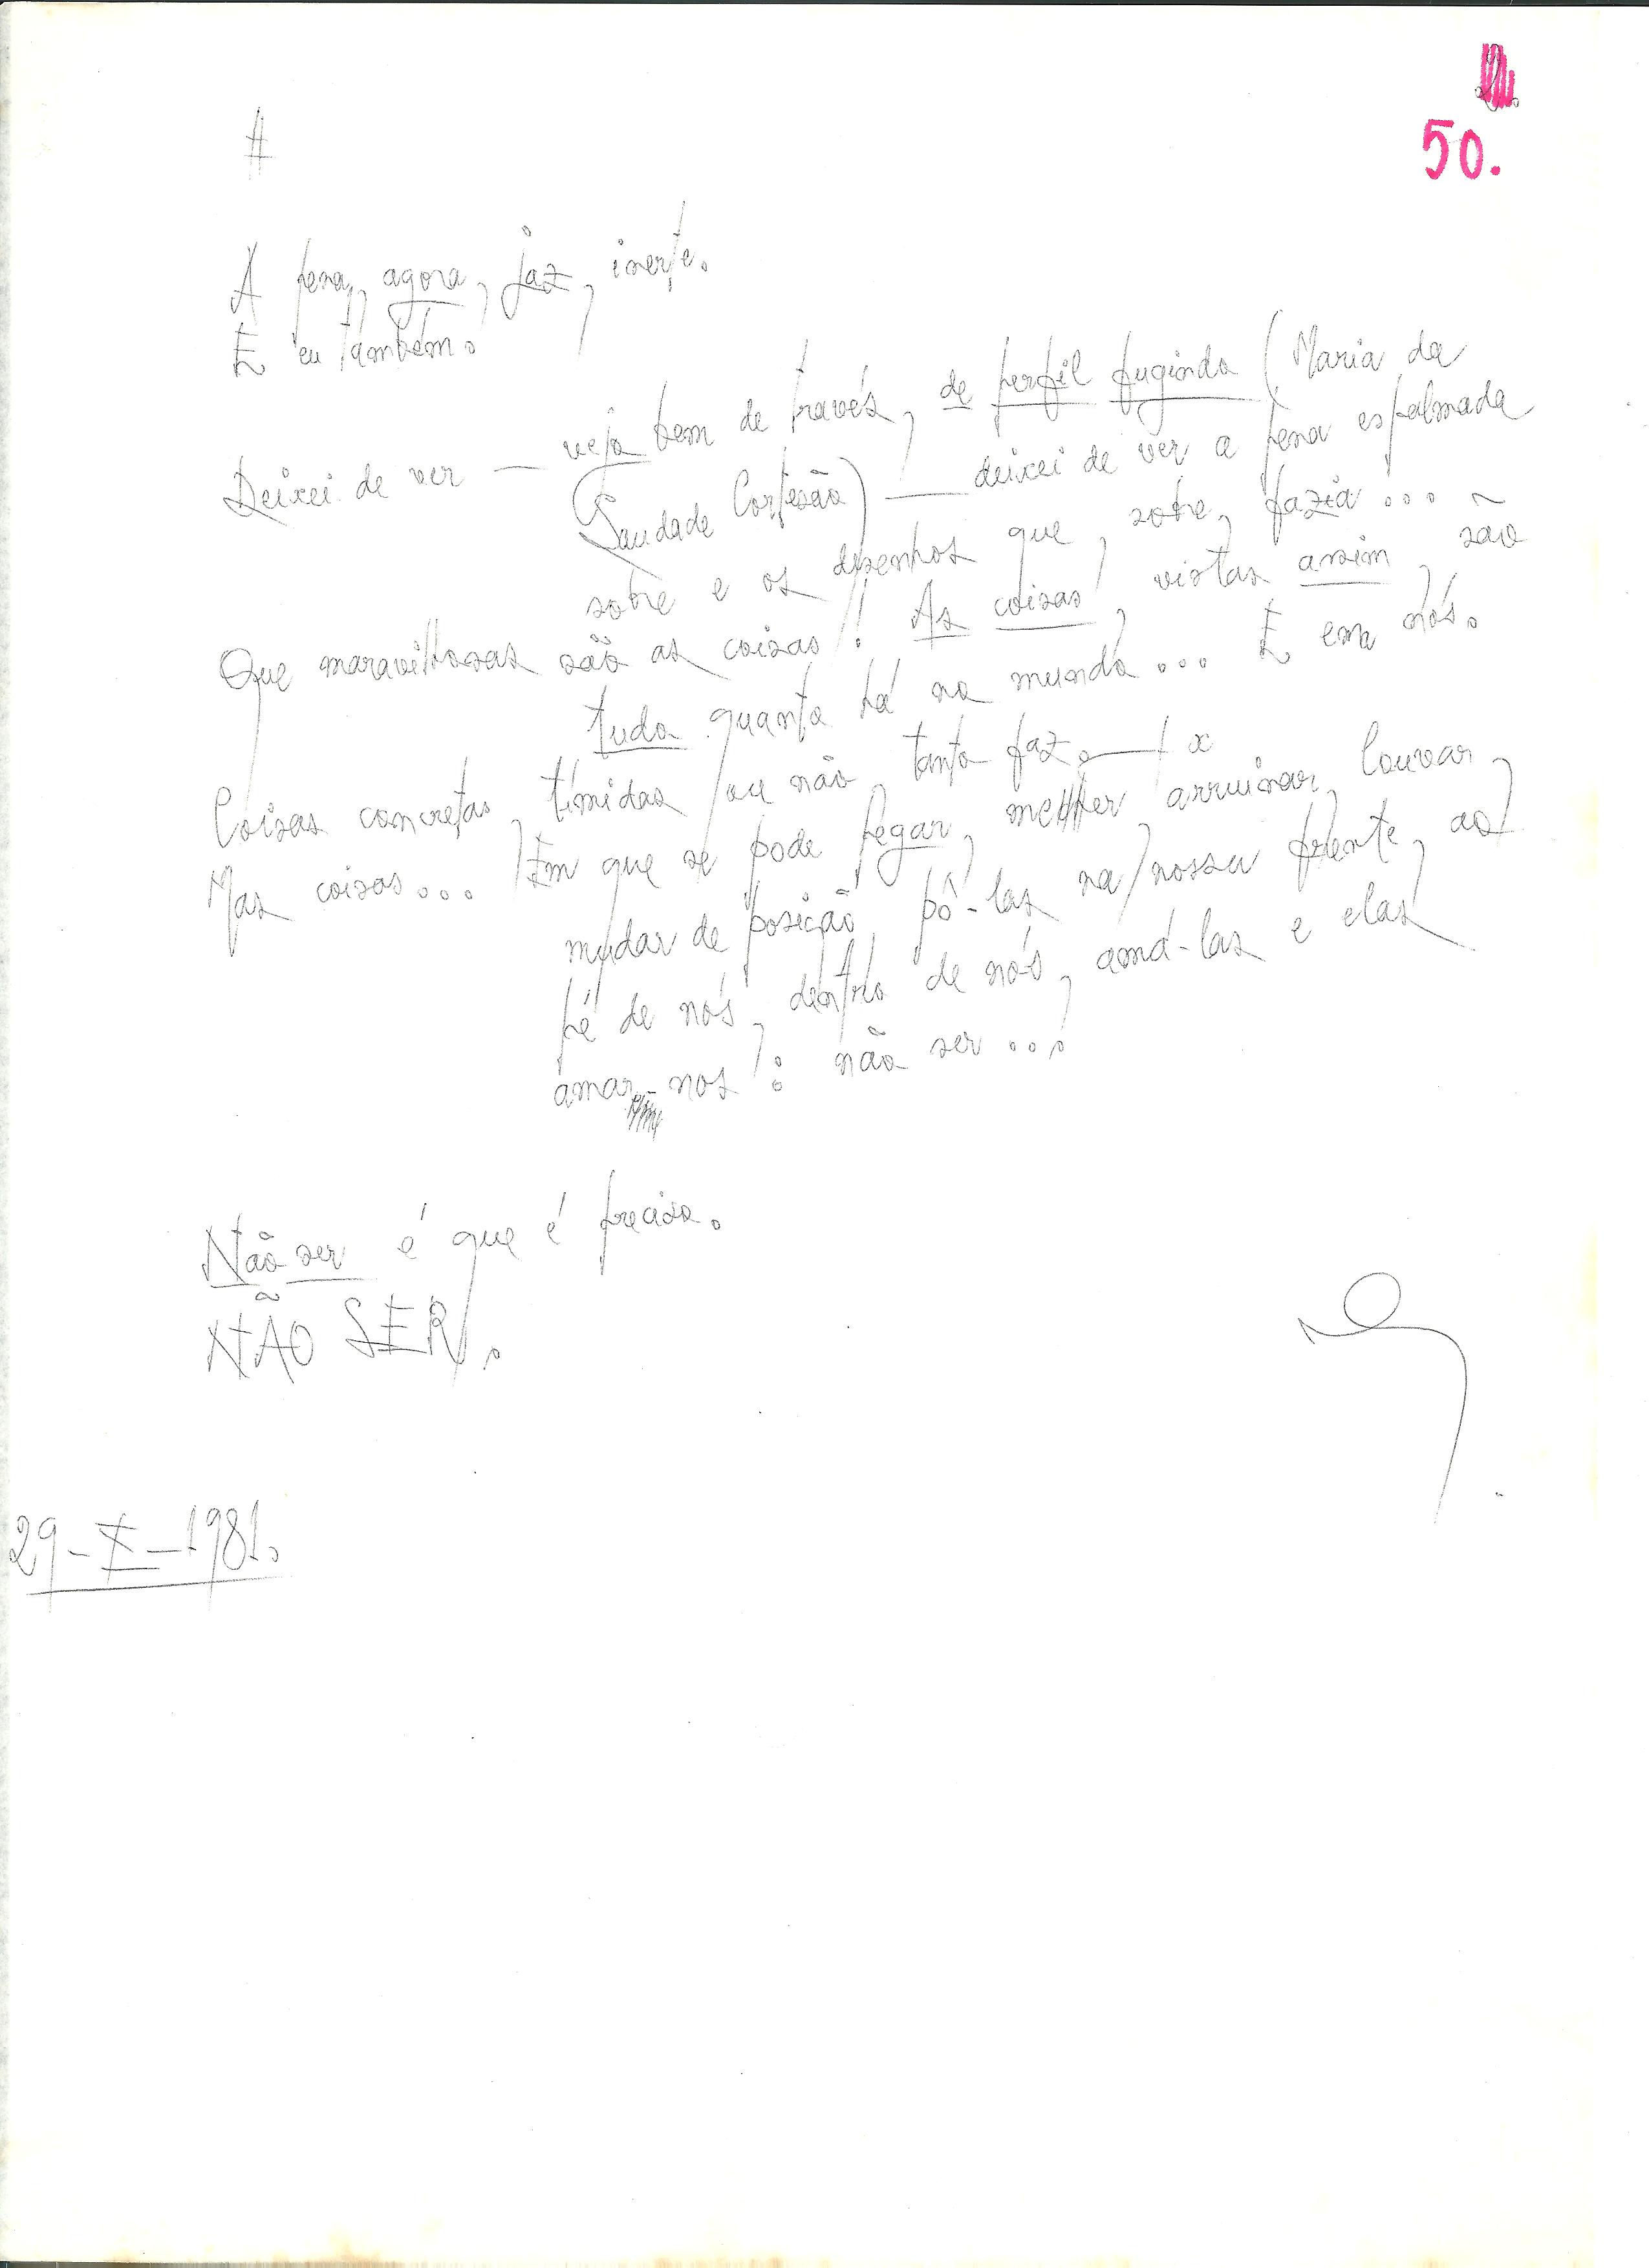 2.
50.
#
A pena, agora, jaz, inerte.
E eu também.
Deixei de ver — vejo bem de través, de perfil fugindo (Maria da
Saudade Cortesão) — deixei de ver a pena espalmada
sobre e os desenhos que, sobre, fazia...
Que maravilhosas são as coisas! As coisas, vistas assim, são
tudo quanto há no mundo... E em nós.
Coisas concretas, tímidas ou não, tanto faz.
Mas coisas... Em que se pode pegar, mexer, arruinar, louvar,
mudar de posição, pô-las na nossa frente, ao
pé de nós, dentro de nós, amá-las e elas
amar-nos: não ser...
Não ser é que é preciso.
NÃO SER.
29-X-1981.